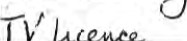 TV licence